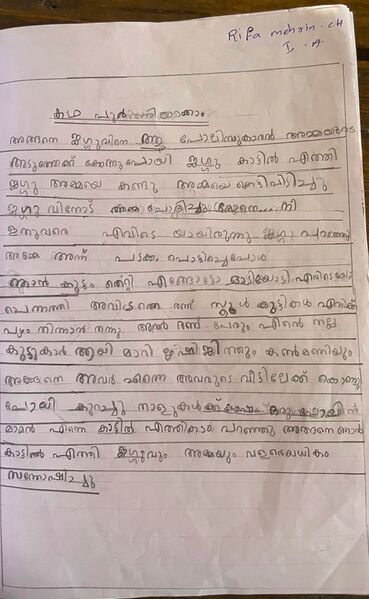 Rifa mehrin - CH
I - A
കഥ പൂർത്തിയാക്കാം
അങ്ങനെ ജഗ്ഗുവിനെ ആ പോലീസുകാരൻ അമ്മയുടെ
അടുത്തേക്ക് കൊണ്ടുപോയി ജഗ്ഗു കാട്ടിൽ എത്തി
ജഗ്ഗു അമ്മയെ കണ്ടു അമ്മയെ കെട്ടിപിടിച്ചു
ജഗ്ഗു വിനോട് അമ്മ ചോദിച്ചു മോനെ.... നീ
ഇതുവരെ എവിടെ യായിരുന്നു ജഗ്ഗു പറഞ്ഞു
അമ്മേ അന്ന് പടക്കം പൊട്ടിച്ചപ്പോൾ
ഞാൻ കൂട്ടം തെറ്റി എങ്ങോട്ടോ ഓടിയോട്ടി എവിടെയോ
ചെന്നെത്തി അവിടുത്തെ രണ്ട് സ്കൂൾ കുട്ടികൾ എനിക്ക്
പഴം തിന്നാൻ തന്നു അവർ രണ്ട് പേരും എൻെറ നല്ല
കൂട്ടുകാർ ആയി മാറി ഇന്ദ്രജിത്തും കൺമണിയും
അങ്ങനെ അവർ എന്നെ അവരുടെ വീട്ടിലേക്ക് കൊണ്ടു
പോയി കുറച്ചു നാളുകൾക്ക് ശേഷം ഒരു പോലീസ്
മാമൻ എന്നെ കാട്ടിൽ എത്തിക്കാമെ പറഞ്ഞു അങ്ങനെ ഞാൻ
കാട്ടിൽ എത്തി ജഗ്ഗുവും അമ്മയും വളരെയധികം
സന്തോഷിച്ചു